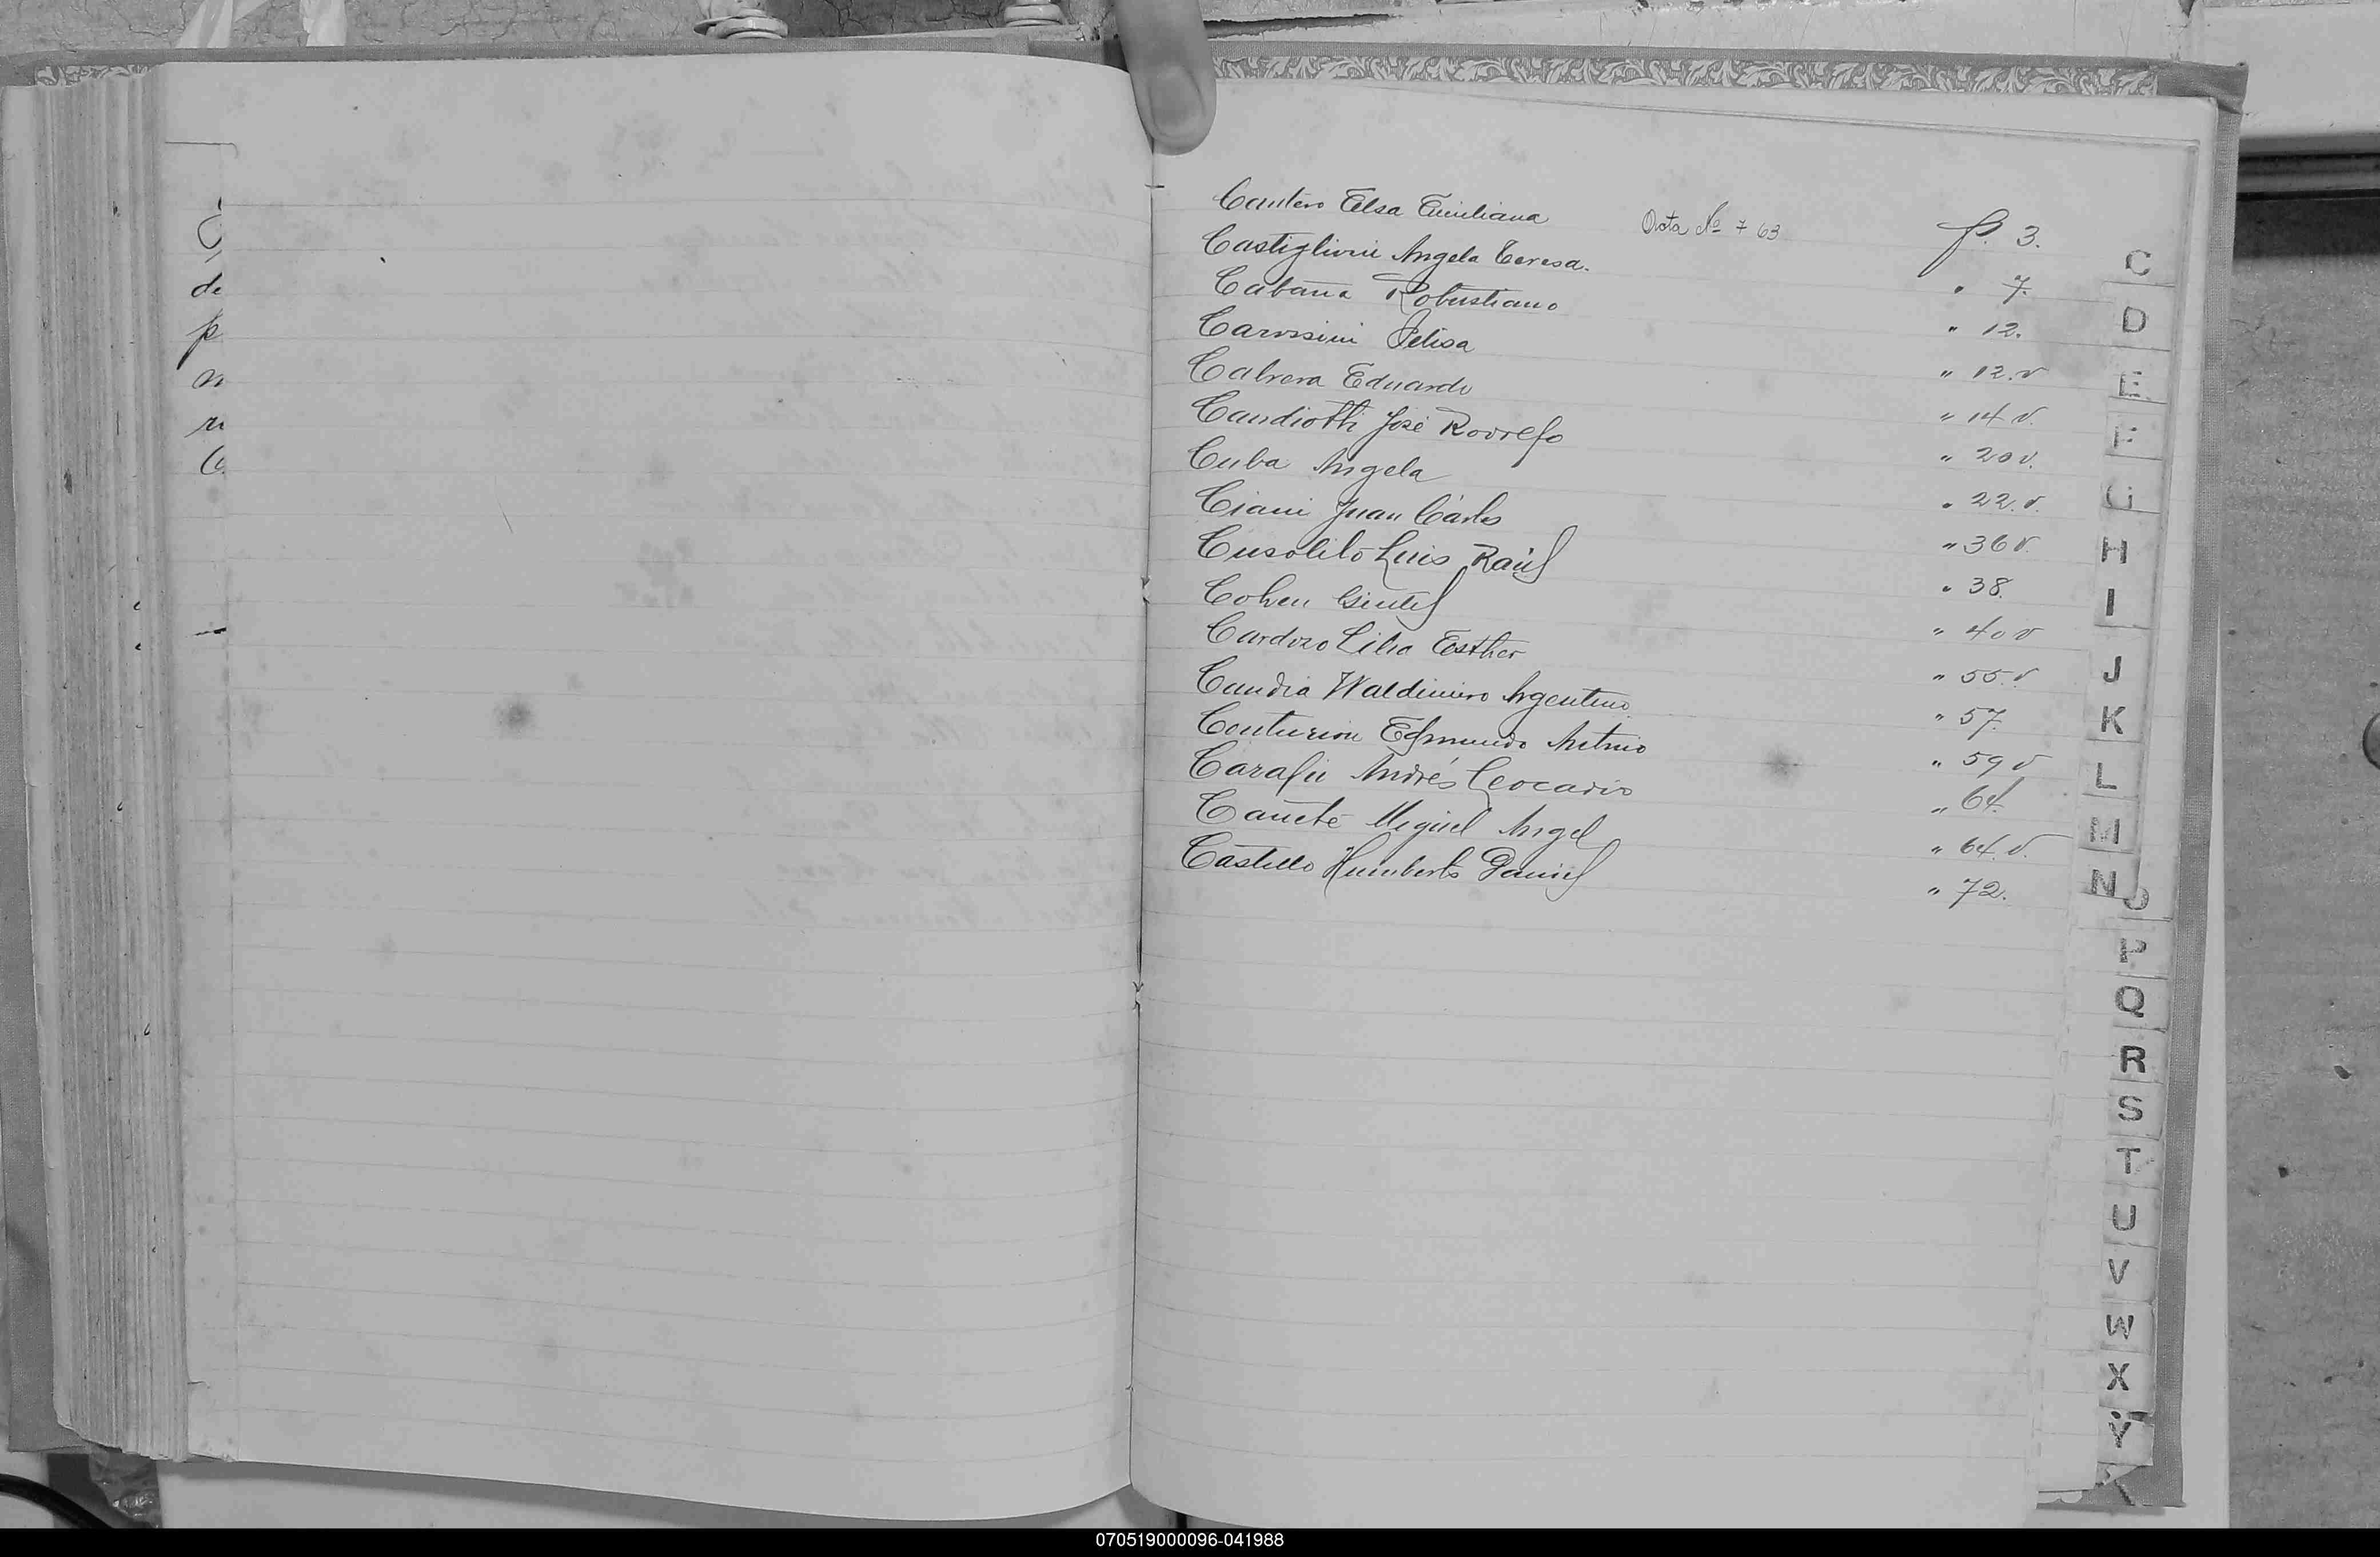 de
p
Cantero Elsa Emiliana Acta No 763 f. 3.
Castiglioni Angela Teresa. " 7.
Cabaña Robustiano " 12.
Carossini Felisa " 12.v
Cabrera Eduardo " 14 v.
Candiotti José Rodolfo " 20 v.
Cuba Angela " 22.v.
Ciani Juan Cárlos " 36 v.
Cusolito Luis Raúl " 38.
Cohen Gentil " 40 v
Cardozo Lilia Esther " 55.v
Candia Waldimiro Argentino " 57.
Centurion Edmundo Antonio " 59 v
Carafii Andrés Leocadio " 64.
Cañete Miguel Angel " 64.v.
Castillo Humberto Daniel " 72.
C
D
E
F
G
H
I
J
K
L
M
N
O
P
Q
R
S
T
U
V
W
X
Y
070519000096-041988